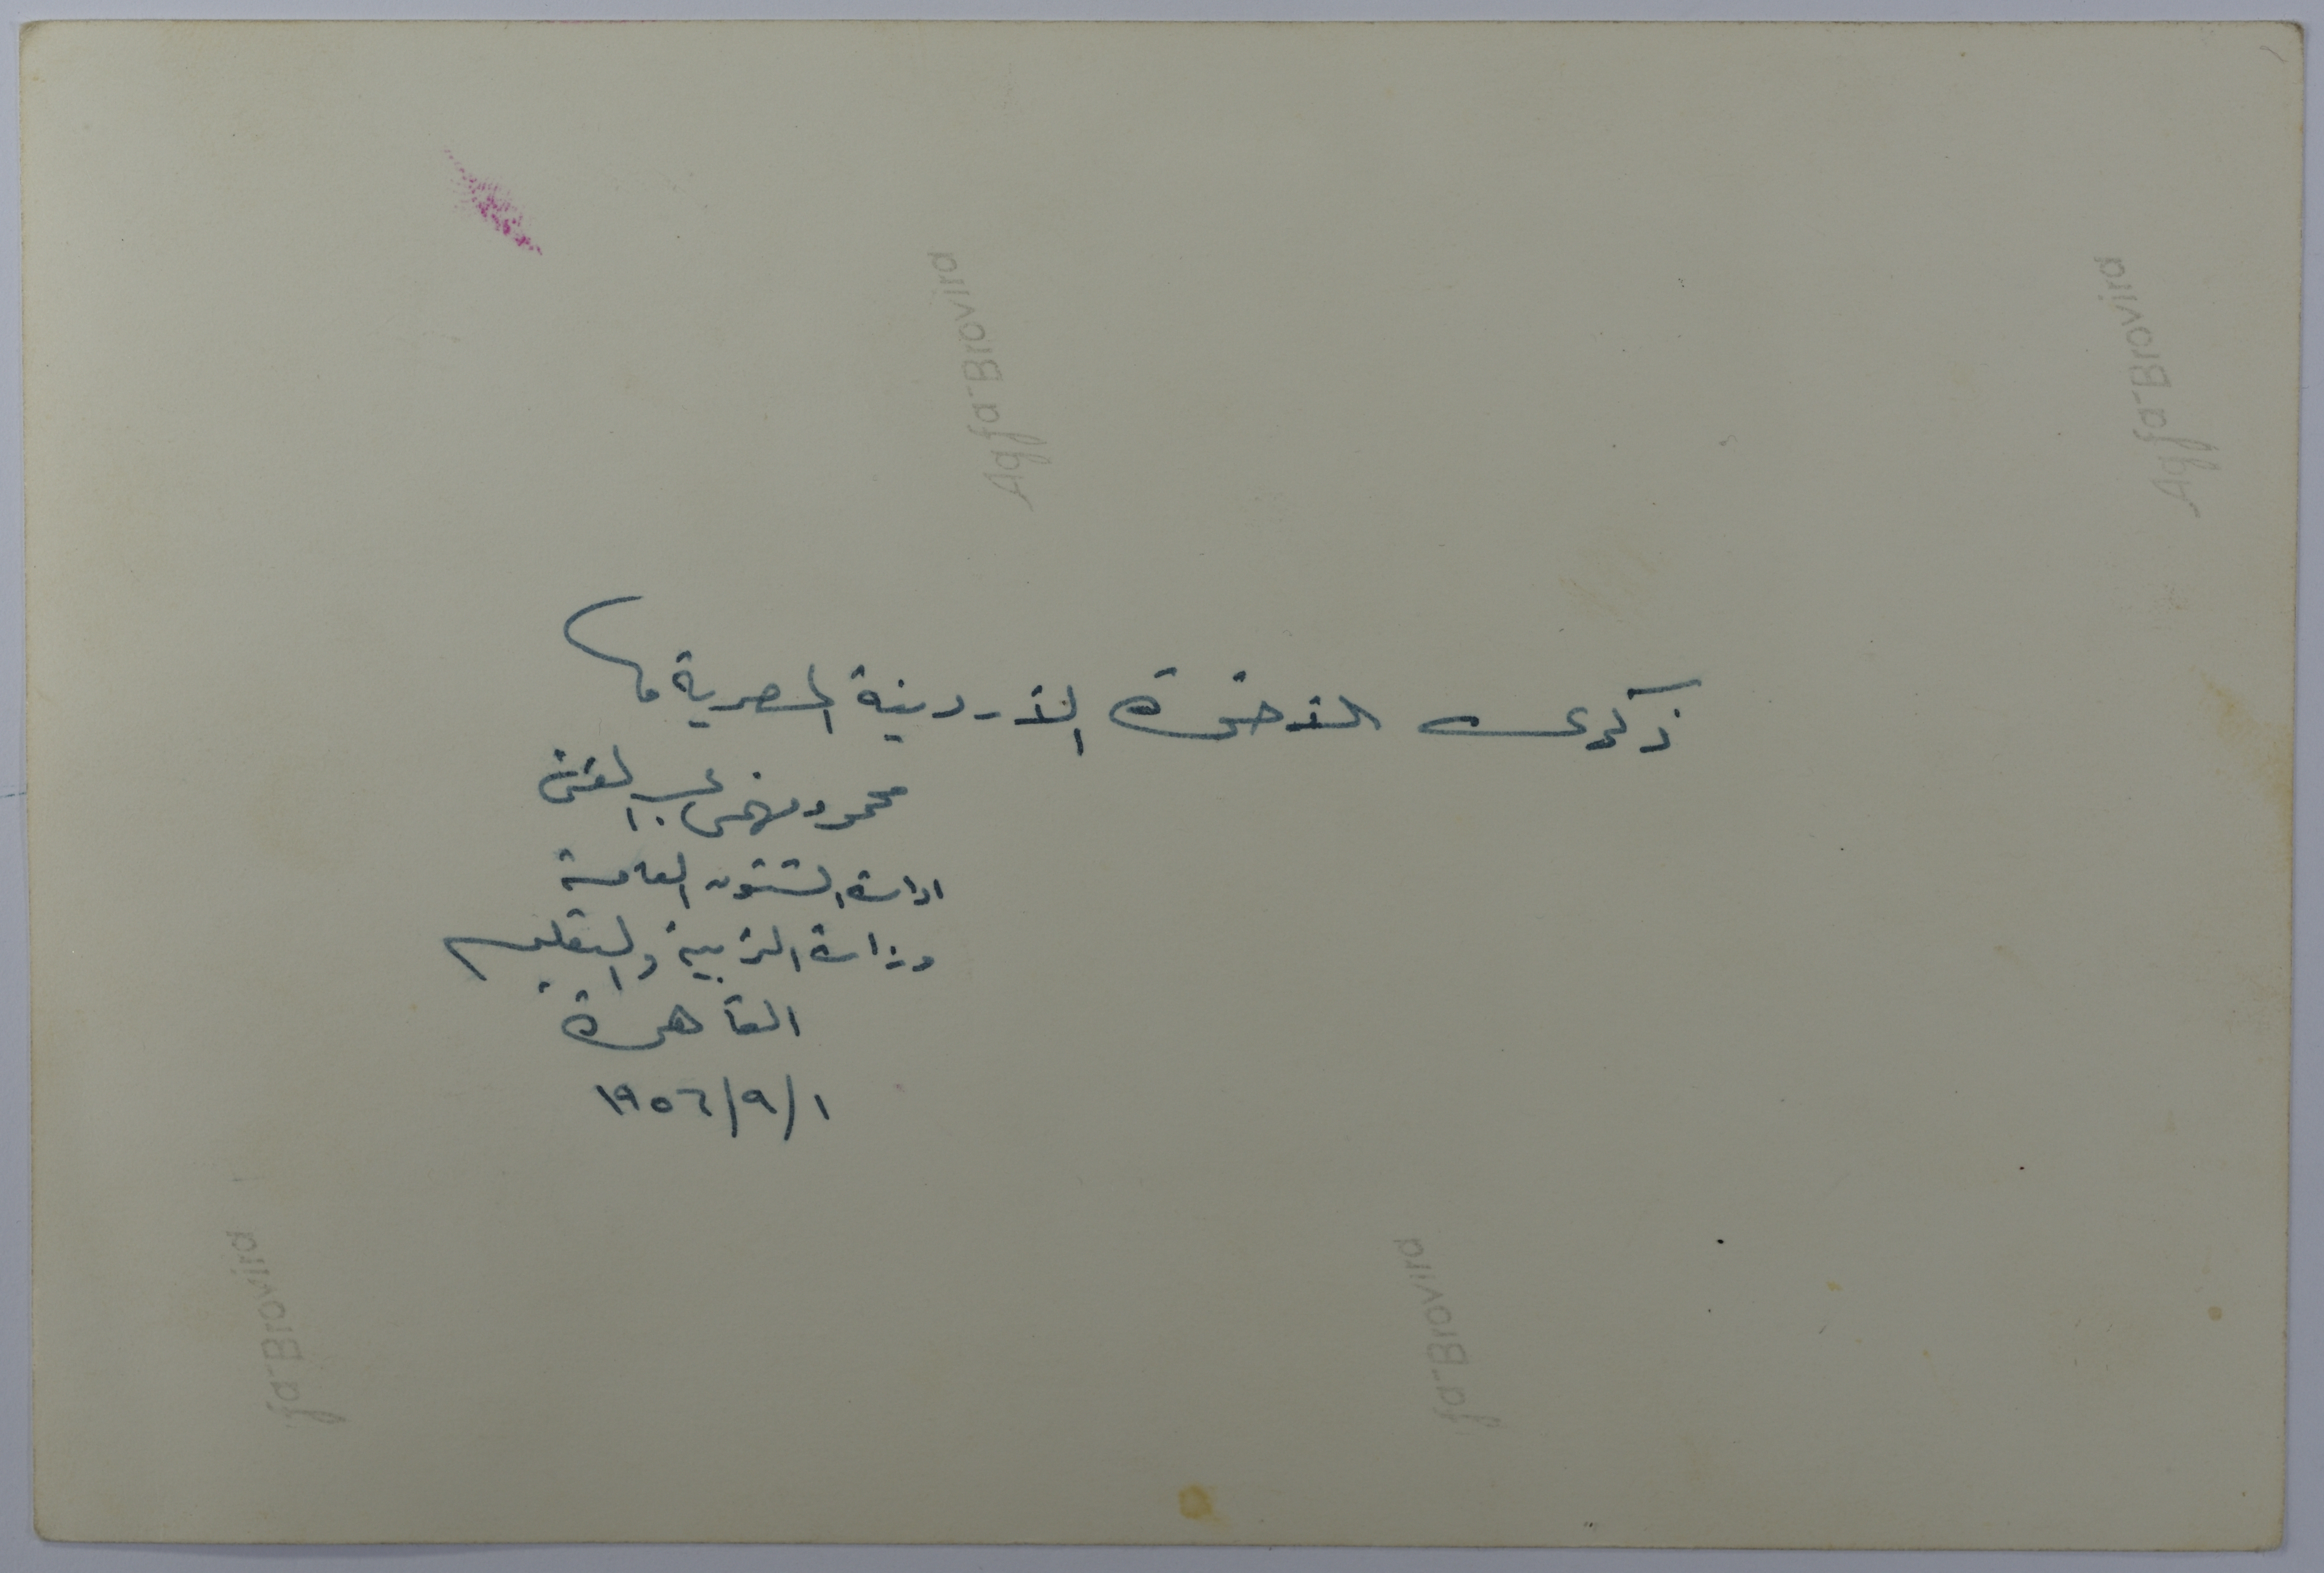 Agfa-Brovira
Agfa-Brovira
ذكرى الأخوة الأردنية المصرية
محمود فهمى عبد الغنى
ادارة الشئون العامة
وزارة التربية والتعليم
القاهرة
١/٩/١٩٥٦
fa-Brovira
fa-Brovira